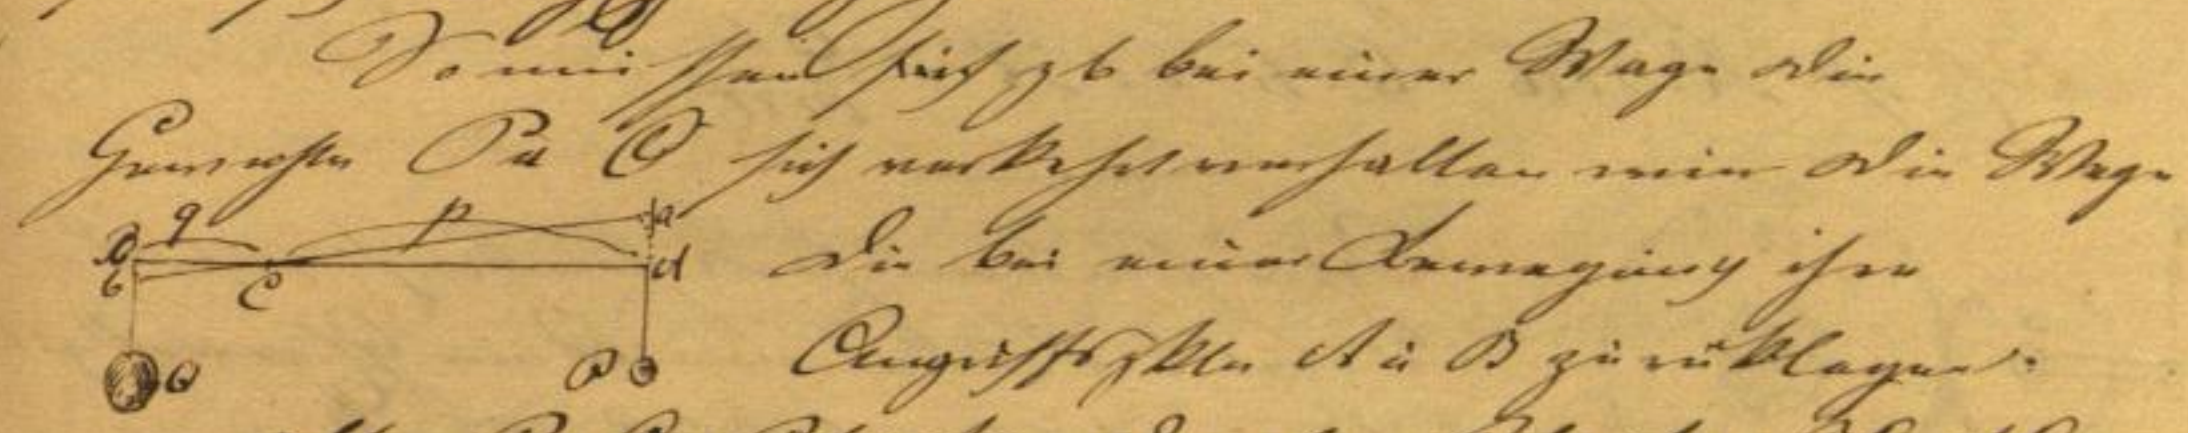 So müssen sich z b bei einer Wage die
Gewichte P u Q sich verkehrt verhalten wie die Wege
q p a
B A
b C
die bei einer Bewegung ihre
Angriffspkte A u B zurüklegen.
Q P